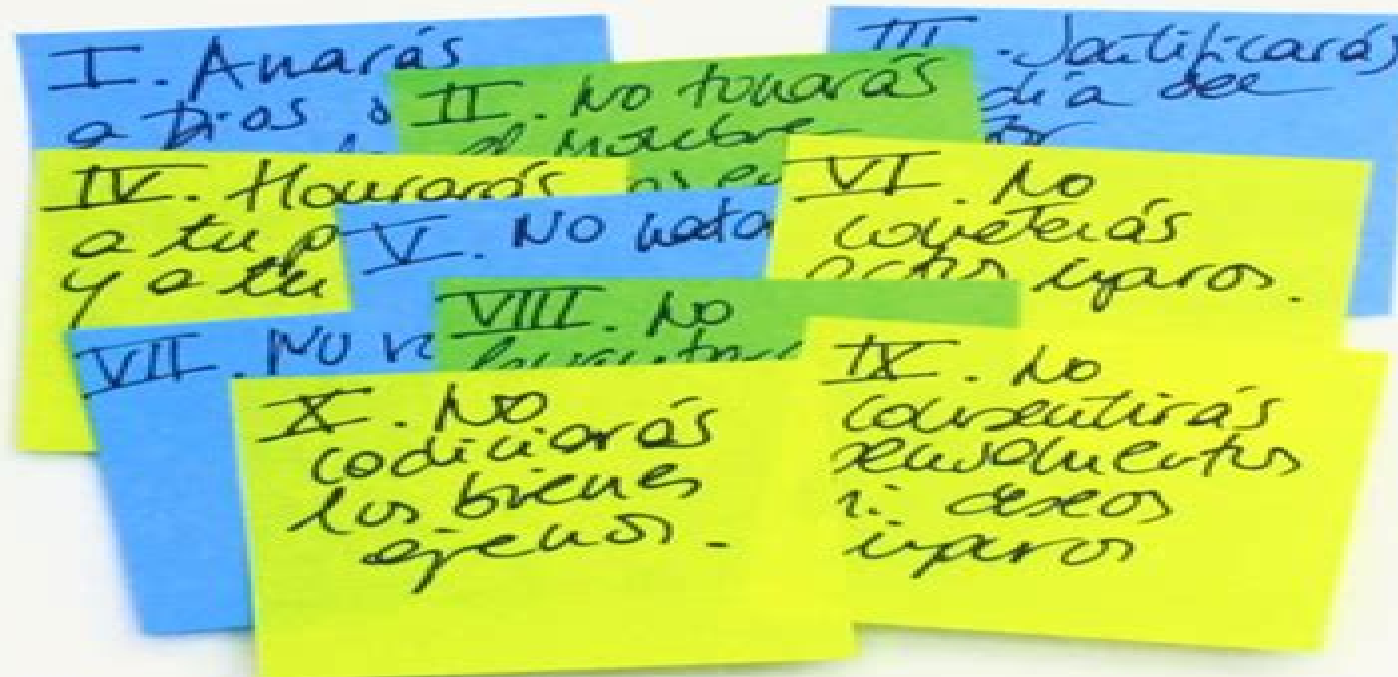 I. Amarás
a Dios
II. No tomarás
el nombre
III. Santificarás
día del
IV. Honrarás
a tu
y a tu
V. No
VI. No
cometerás
actos impuros.
VII. No
VIII. No
IX. No
consentirás
pensamientos
ni deseos
impuros
X. No
codiciarás
los bienes
ajenos.